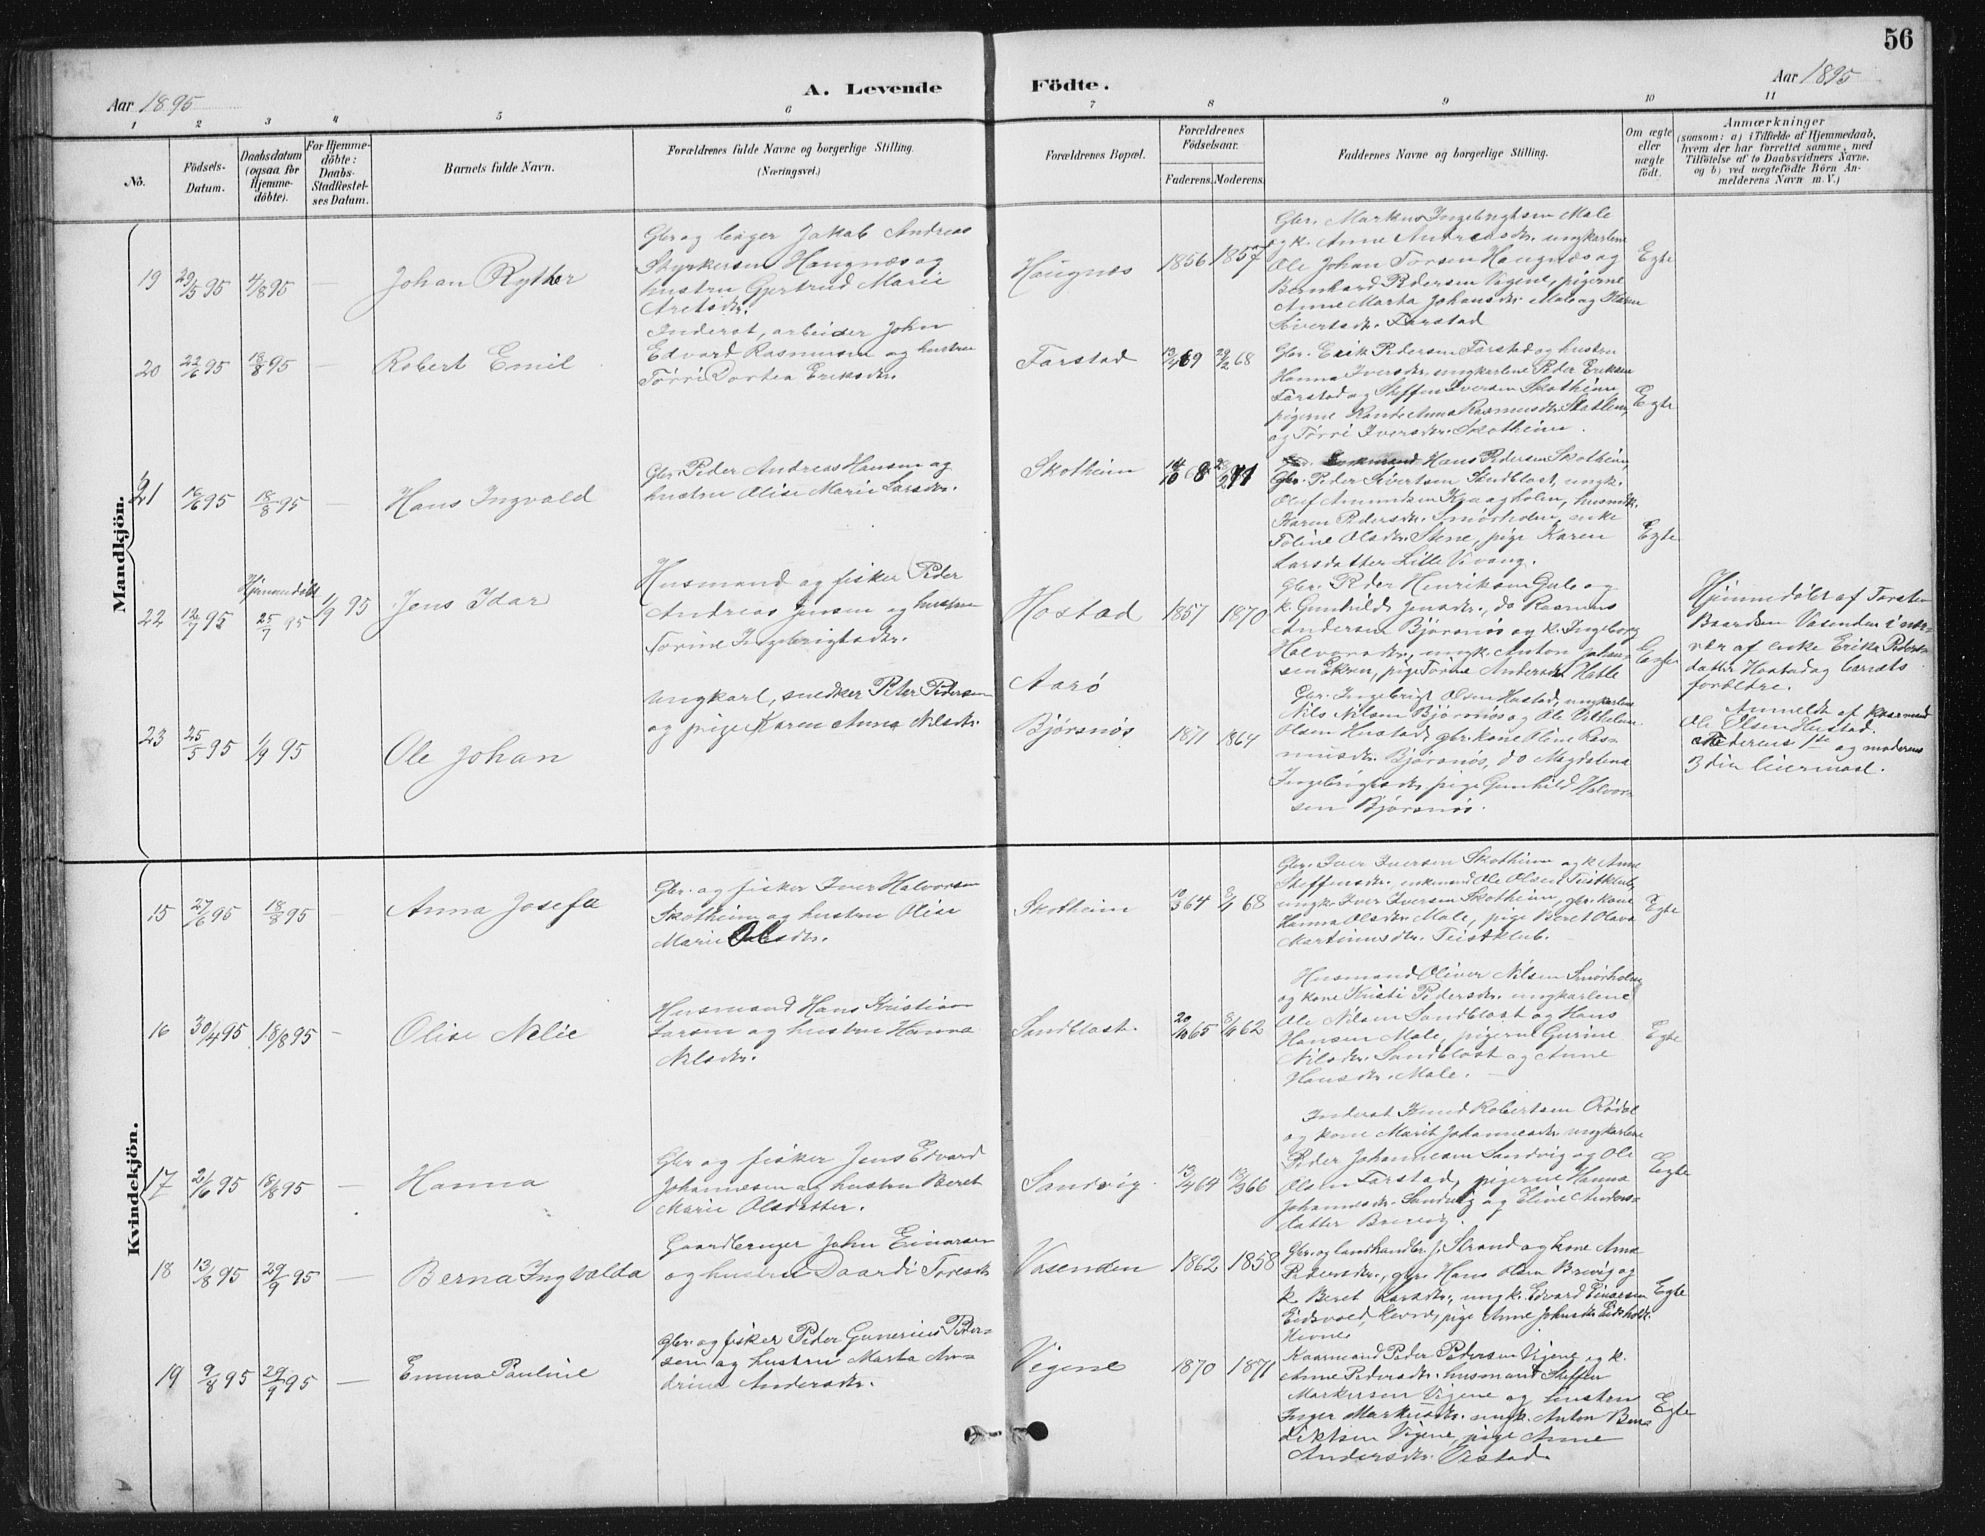 56
Aar 1895
A. Levende
Födte.
Aar 1895
1 2 3 4 5 6 7 8 9 10 11
No.
Födsels-Datum.
Daabsdatum (ogsaa for Hjemme-döbte).
For Hjemme-döbte: Daabs-Stadfæstel-ses Datum.
Barnets fulde Navn.
Forældrenes fulde Navne og borgerlige Stilling.
(Næringsvei.)
Forældrenes Bopæl.
Forældrenes Födselsaar.
Faderens. Moderens.
Faddernes Navne og borgerlige Stilling.
Om ægte eller uægte födt.
Anmærkninger
(saasom: a) i Tilfælde af Hjemmedaab,
hvem der har forrettet samme, med
Tilföielse af to Daabsvidners Navne.
og b) ved uægtefödte Börn An-
melderens Navn m. V.)
Mandkjön.
19 29/5 95 4/8 95 — Johan Ryther
Gbr og Andreas
Styrkersen Haugnæs og
hustru Gjertrud Marie
Haugnæs 1856 1857
Gbr. Markus Ingebrigtsen Male
og k. Anne Andreasdr. ungkarlene
Ole Johan Torsen Haugnæs og
Bernhard Pedersen Vigene, pigerne
Anne Marta Johansdr. Male og
Sivertsdr. Farstad
Egte
20 22/6 95 18/8 95 — Robert Emil
Inderst, arbeider John
Edvard Rasmusen og hustru
Törri Dortea Eriksdr.
Farstad 13/4 69 29/2 68
Gbr. Erik Pedersen Farstad og hustru
Hanna Iversdr. ungkarlene Peder Eriksen
Farstad og Steffen Iversen Skotheim,
pigerne Anna Rasmusdr.
og Törri Iversdr. Skotheim.
Egte
21 16/6 95 18/8 95 — Hans Ingvald
Gbr. Peder Andreas Hansen og
hustru Olise Marie Larsdr.
Skotheim 14/10 68
Hans Pedersen Skotheim,
Gbr. Peder Sivertsen Sandblost, ungk.
Oluf Amundsen
Karen Pedersdr. enke
Toline Olsdr. Stene, pige Karen
Larsdatter Lille
Egte
22 12/7 95 Hjemmedöbt 25/7 95 1/9 95 Jens Idar
Husmand og fisker Peder
Andreas Jensen og hustru
Torine Ingebrigtsdr.
Hostad 1857 1870
Gbr. Peder Henriksen Gule og
k. Gunhild Jensdr., do Rasmus
Andersen Björsnös og k. Ingeborg
Halvorsdr., ungk. Anton Johan-
sen Ekren, pige Torine Andersdr. Hatle
Egte
Hjemmedöbt af Torsten
Baardsen Vasenden i nær-
vær af enke Erika Peders-
datter Hostad og barnets
forældre.
23 25/5 95 1/9 95 Ole Johan
Ungkarl, snedker Peter Pedersen
og pige Karen Anna Nilsdr.
Aarö
Björsnös 1871 1864
Gbr. Ingebrigt Olsen Hustad, ungkarlene
Nils Nilsen Björsnös og Ole Vilhelm
Olsen Hustad, gbr. kone Oline Ras-
musdr. Björsnös, do Magdalena
Ingebrigtsdr. pige Gunhild Halvor-
sen Björsnös.
Anmeldt af kaarmand
Ole Olsen Hustad.
Faderens 1ste og moderens
3die leiermaal.
Kvindekjön.
15 27/6 95 18/8 95 Anna Josefa
Gbr. og fisker Iver Halvorsen
Skotheim og hustru Olise
Marie Olsdr.
Skotheim 19/3 64 3/4 68
Gbr. Iver Iversen Skotheim og k. Anne
Steffensdr., enkemand Ole Olsen Teistklub,
ungk. Iver Iversen Skotheim, gbr. kone
Hanna Olsdr. Male, pige Beret Olava
Martinusdr. Teistklub.
Egte
16 30/4 95 18/8 95 — Olise Nelie
Husmand Hans Kristian
Larsen og hustru Hanna
Nilsdr.
Sandblost. 20/10 65 62
Husmand Oliver Nilsen
og kone Kristi Pedersdr. ungkarlene
Ole Nilsen Sandblost og Hans
Hansen Male, pigerne Gurine
Nilsdr. Sandblost og Anne
Hansdr. Male.
Egte
17 21/6 95 18/8 95 — Hanna
Gbr og fisker Jens Edvard
Johannesen og hustru Beret
Marie Olsdatter.
Sandvig. 13/4 64 13/3 66
Inderst Knud Robertsen Rödal
og kone Marit Johannesdr. ungkarlene
Peder Johannesen Sandvig og Ole
Olsen Farstad, pigerne Hanna
Johannesdr. Sandvig og Eline Anders-
datter Brevig.
Egte
18 13/8 95 29/9 95 — Berna Ingvalda
Gaardbruger John Einarsen
og hustru Baardi Toresdr.
Vasenden 1862 1858
Gbr. og landhandler J. Strand og kone Ana
Pedersdr., gbr. Hans Olsen Brevig og
k. Beret Larsdr., ungk. Edvard Einarsen
Eidsvold, pige Anne Johnsdr.
Egte
19 9/8 95 29/9 95 — Emma Pauline
Gbr. og fisker Peder Gunerius Peder-
sen og hustru Marta An-
drine Andersdr.
Vigene 1870 1871
Kaarmand Peder Pedersen Vigene og k.
Anne Pedersdr. husmand Steffen
Markussen Vigene og hustru
Inger Markusdr. ungk. Anton Ben-
diktsen Vigene, pige Anne
Andersdr. Vestad.
Egte